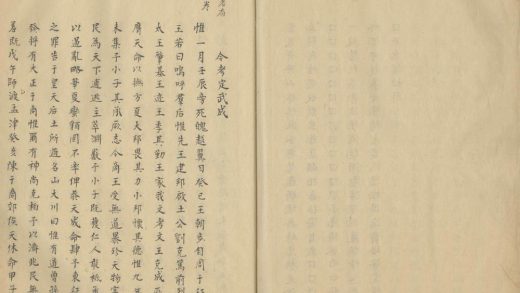 今考定武成
惟一月壬辰旁死魄越翼日癸巳王朝步自周于征
王若曰嗚呼羣后惟先王建邦啟土公劉克篤前烈
太王肇基王迹王季其勤王家我文考文王克成
膺天命以撫方夏大邦畏其力小邦懷其德惟九年
未集予小子其承厥志今商王受無道暴殄天物害
民為天下逋逃主萃淵藪予小子既獲仁人敢祗承
以遏亂略華夏蠻貊罔不率俾恭天成命肆予東征
之罪告于皇天后土所過名山大川曰惟有道曾孫
發將有大正于商惟爾有神尚克相予以濟兆民無
羞既戊午師渡孟津癸亥陳于商郊俟天休命甲子